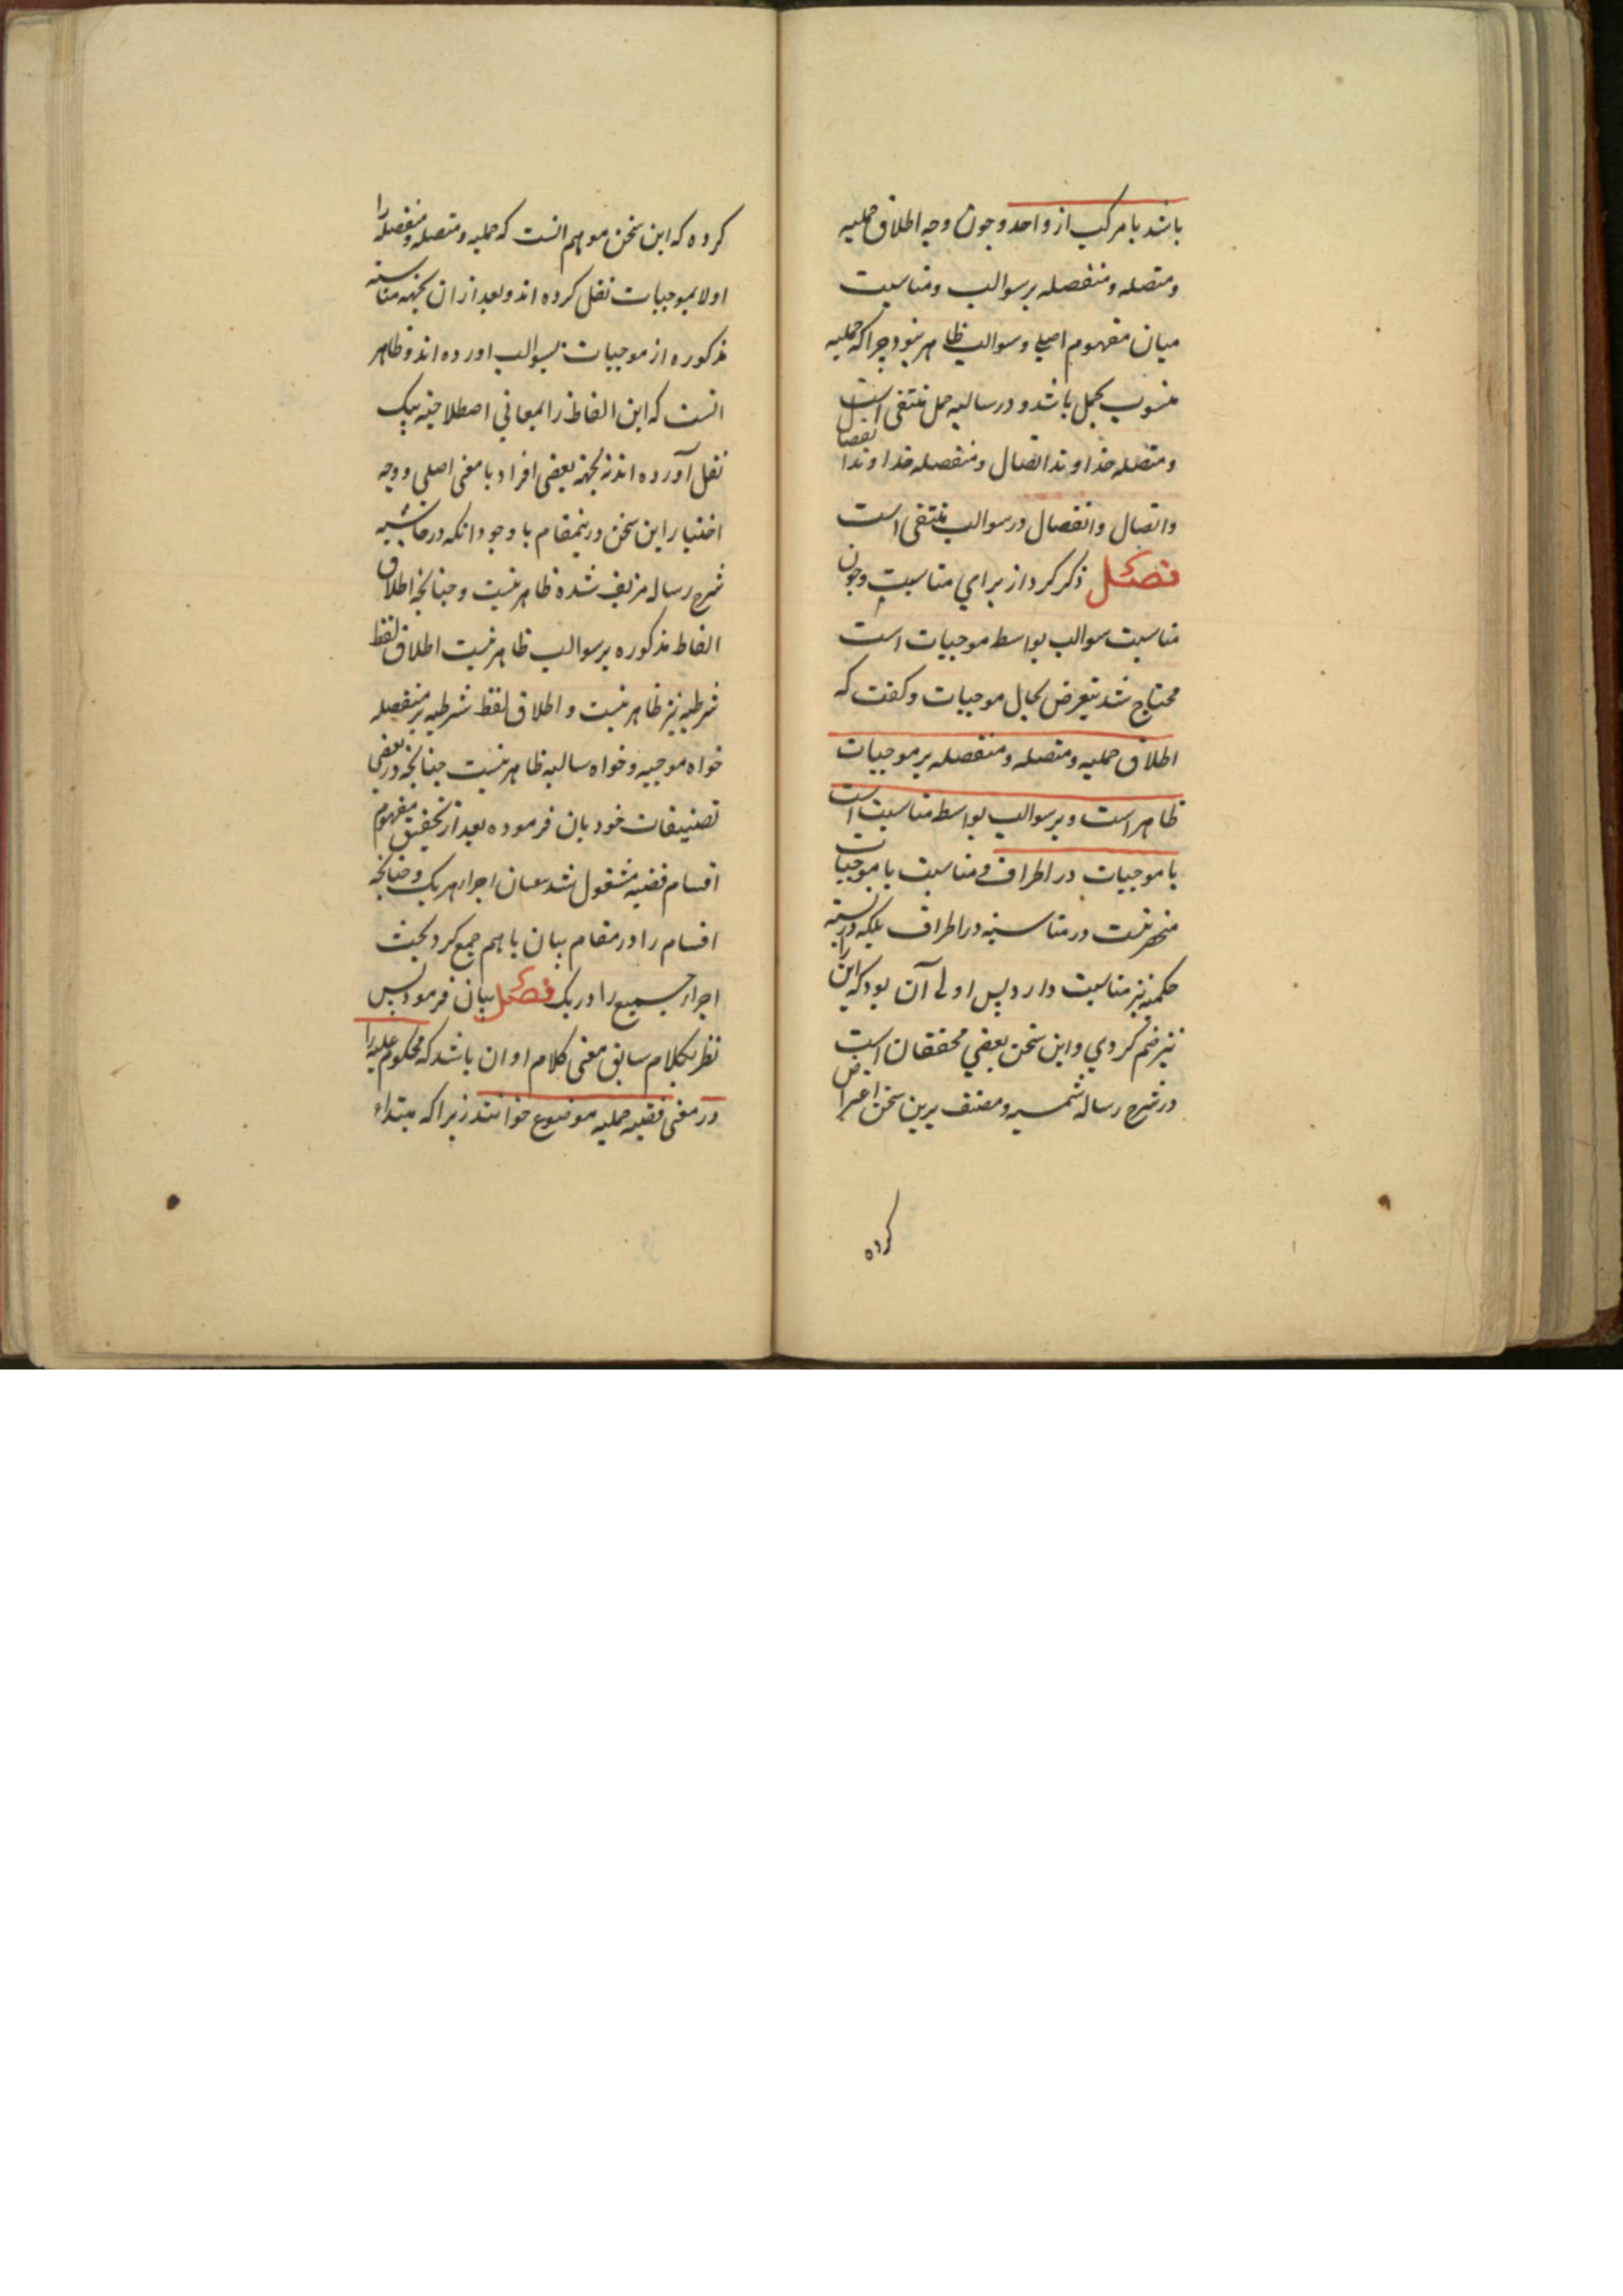 باشد یا مرکب از واحد و چون وجه اطلاق حملیه
و متصله و منفصله بر سوالب و مناسبت
میان مفهوم اصلی و سوالب ظاهر نبود چرا که حملیه
منسوب بحمل باشد و در سالبه حمل منتفی است
و متصله خداوند اتصال و منفصله خداوند انفصال
و اتصال و انفصال در سوالب منتفی است
فصل ذکر کرد از برای مناسبت و چون
مناسبت سوالب بواسط موجبات است
محتاج شد بتعرض بحال موجبات و گفت که
اطلاق حملیه و متصله و منفصله بر موجبات
ظاهر است و بر سوالب بواسط مناسبت است
با موجبات در اطراف و مناسبت با موجبات
منحصر نیست در مناسبة در اطراف بلکه در نسبته
حکمیه نیز مناسبت دارد پس اولی آن بود که این را
نیز ضم کردی و این سخن بعضی محققان است
در شرح رساله شمسیه و مصنف برین سخن اعتراض
کرده
کرده که این سخن موهم انست که حملیه و متصله و منفصله را
اولا بموجبات نقل کرده اند و بعد از ان بجهه مناسبته
مذکوره از موجبات بسوالب اورده اند و ظاهر
انست که این الفاظ را بمعانی اصطلاحیه بیک
نقل آورده اند نه بجهة بعضی افراد با معنی اصلی و وجه
اختیار این سخن درینمقام با وجود انکه در حاشیه
شرح رساله مزیف شده ظاهر نیست و چنانچه اطلاق
الفاط مذکوره بر سوالب ظاهر نیست اطلاق لفظ
شرطیه نیز ظاهر نیست و اطلاق لفظ شرطیه بر منفصله
خواه موجبه و خواه سالبه ظاهر نیست چنانچه در بعضی
تصنیفات خود بان فرموده بعد از تحقیق مفهوم
اقسام قضیه مشغول شد ببیان اجزاء هر یک و چنانچه
اقسام را در مقام بیان با هم جمع کرد بحث
اجزاء جمیع را در یک فصل بیان فرمود پس
نظر بکلام سابق معنی کلام او ان باشد که محکوم علیه را
در معنی قضیه حملیه موضوع خوانند زیرا که مبتداء